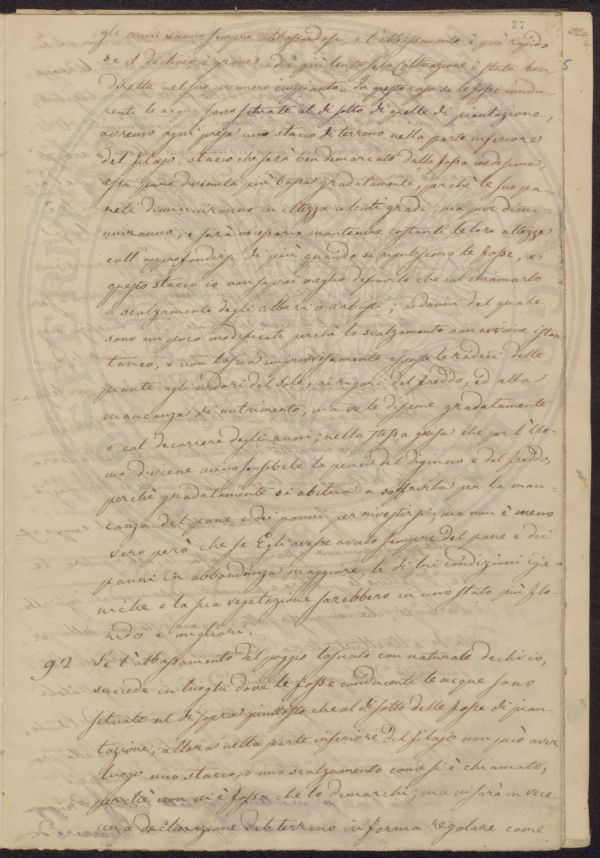 27
gli anni vanno sempre abbassandosi, e l'abbassamento è più rapido
se il declivio è grave ed è più lento se la coltivazione è stata ben
diretta nel suo primiero impianto. In questo caso se le fosse condu-
centi le acque sono situate al di sotto di quelle di piantazione,
avremo ogni presa uno stacco di terreno nella parte inferiore
del filajo, stacco che sarà ben demarcato dalla fossa medesima
essa pure divenuta più bassa gradatamente, perchè le sue pa-
reti diminuiranno in altezza a tenti gradi, ma pur dimi-
nuiranno, e sarà necessario mantenere costanti le loro altezze
coll'approfondirsi di più quando si ripuliscono le fosse, e
questo stacco io non saprei meglio definirlo che col chiamarlo
a scalzamento degli alberi o arbusti; i danni del quale
sono un poco modificati perchè lo scalzamento non avviene istan-
taneo, o non lascia improvvisamente esposte le radici delle
piante agli ardori del sole, ai rigori del freddo, ed alla
mancanza di nutrimento, ma ve le dispone gradatamente
e col decorrere degli anni; nella stessa guisa che per l'Uo-
mo diviene meno sensibile la pena del digiuno e del freddo,
perchè gradatamente si abitua a soffrirla per la man-
canza del pane e dei panni per rivestirsi, ma non è meno
vero però che se Egli avesse avuto sempre del pane e dei
panni in abbondanza maggiore, le di lui condizioni igie-
niche e la sua vegetazione sarebbero in uno stato più flo-
rido e migliori.
92 Se l'abbassamento del poggio lasciato con naturale declivio,
succede in luoghi dove le fosse conducenti le acque sono
situate al di sopra piuttosto che al di sotto delle fosse di pian-
tazione, allora nella parte inferiore del filajo non può aver
luogo uno stacco, o uno scalzamento come si è chiamato,
perchè non vi è fossa che lo demarchi; ma vi sarà in vece
una declinazione del terreno in forma regolare come